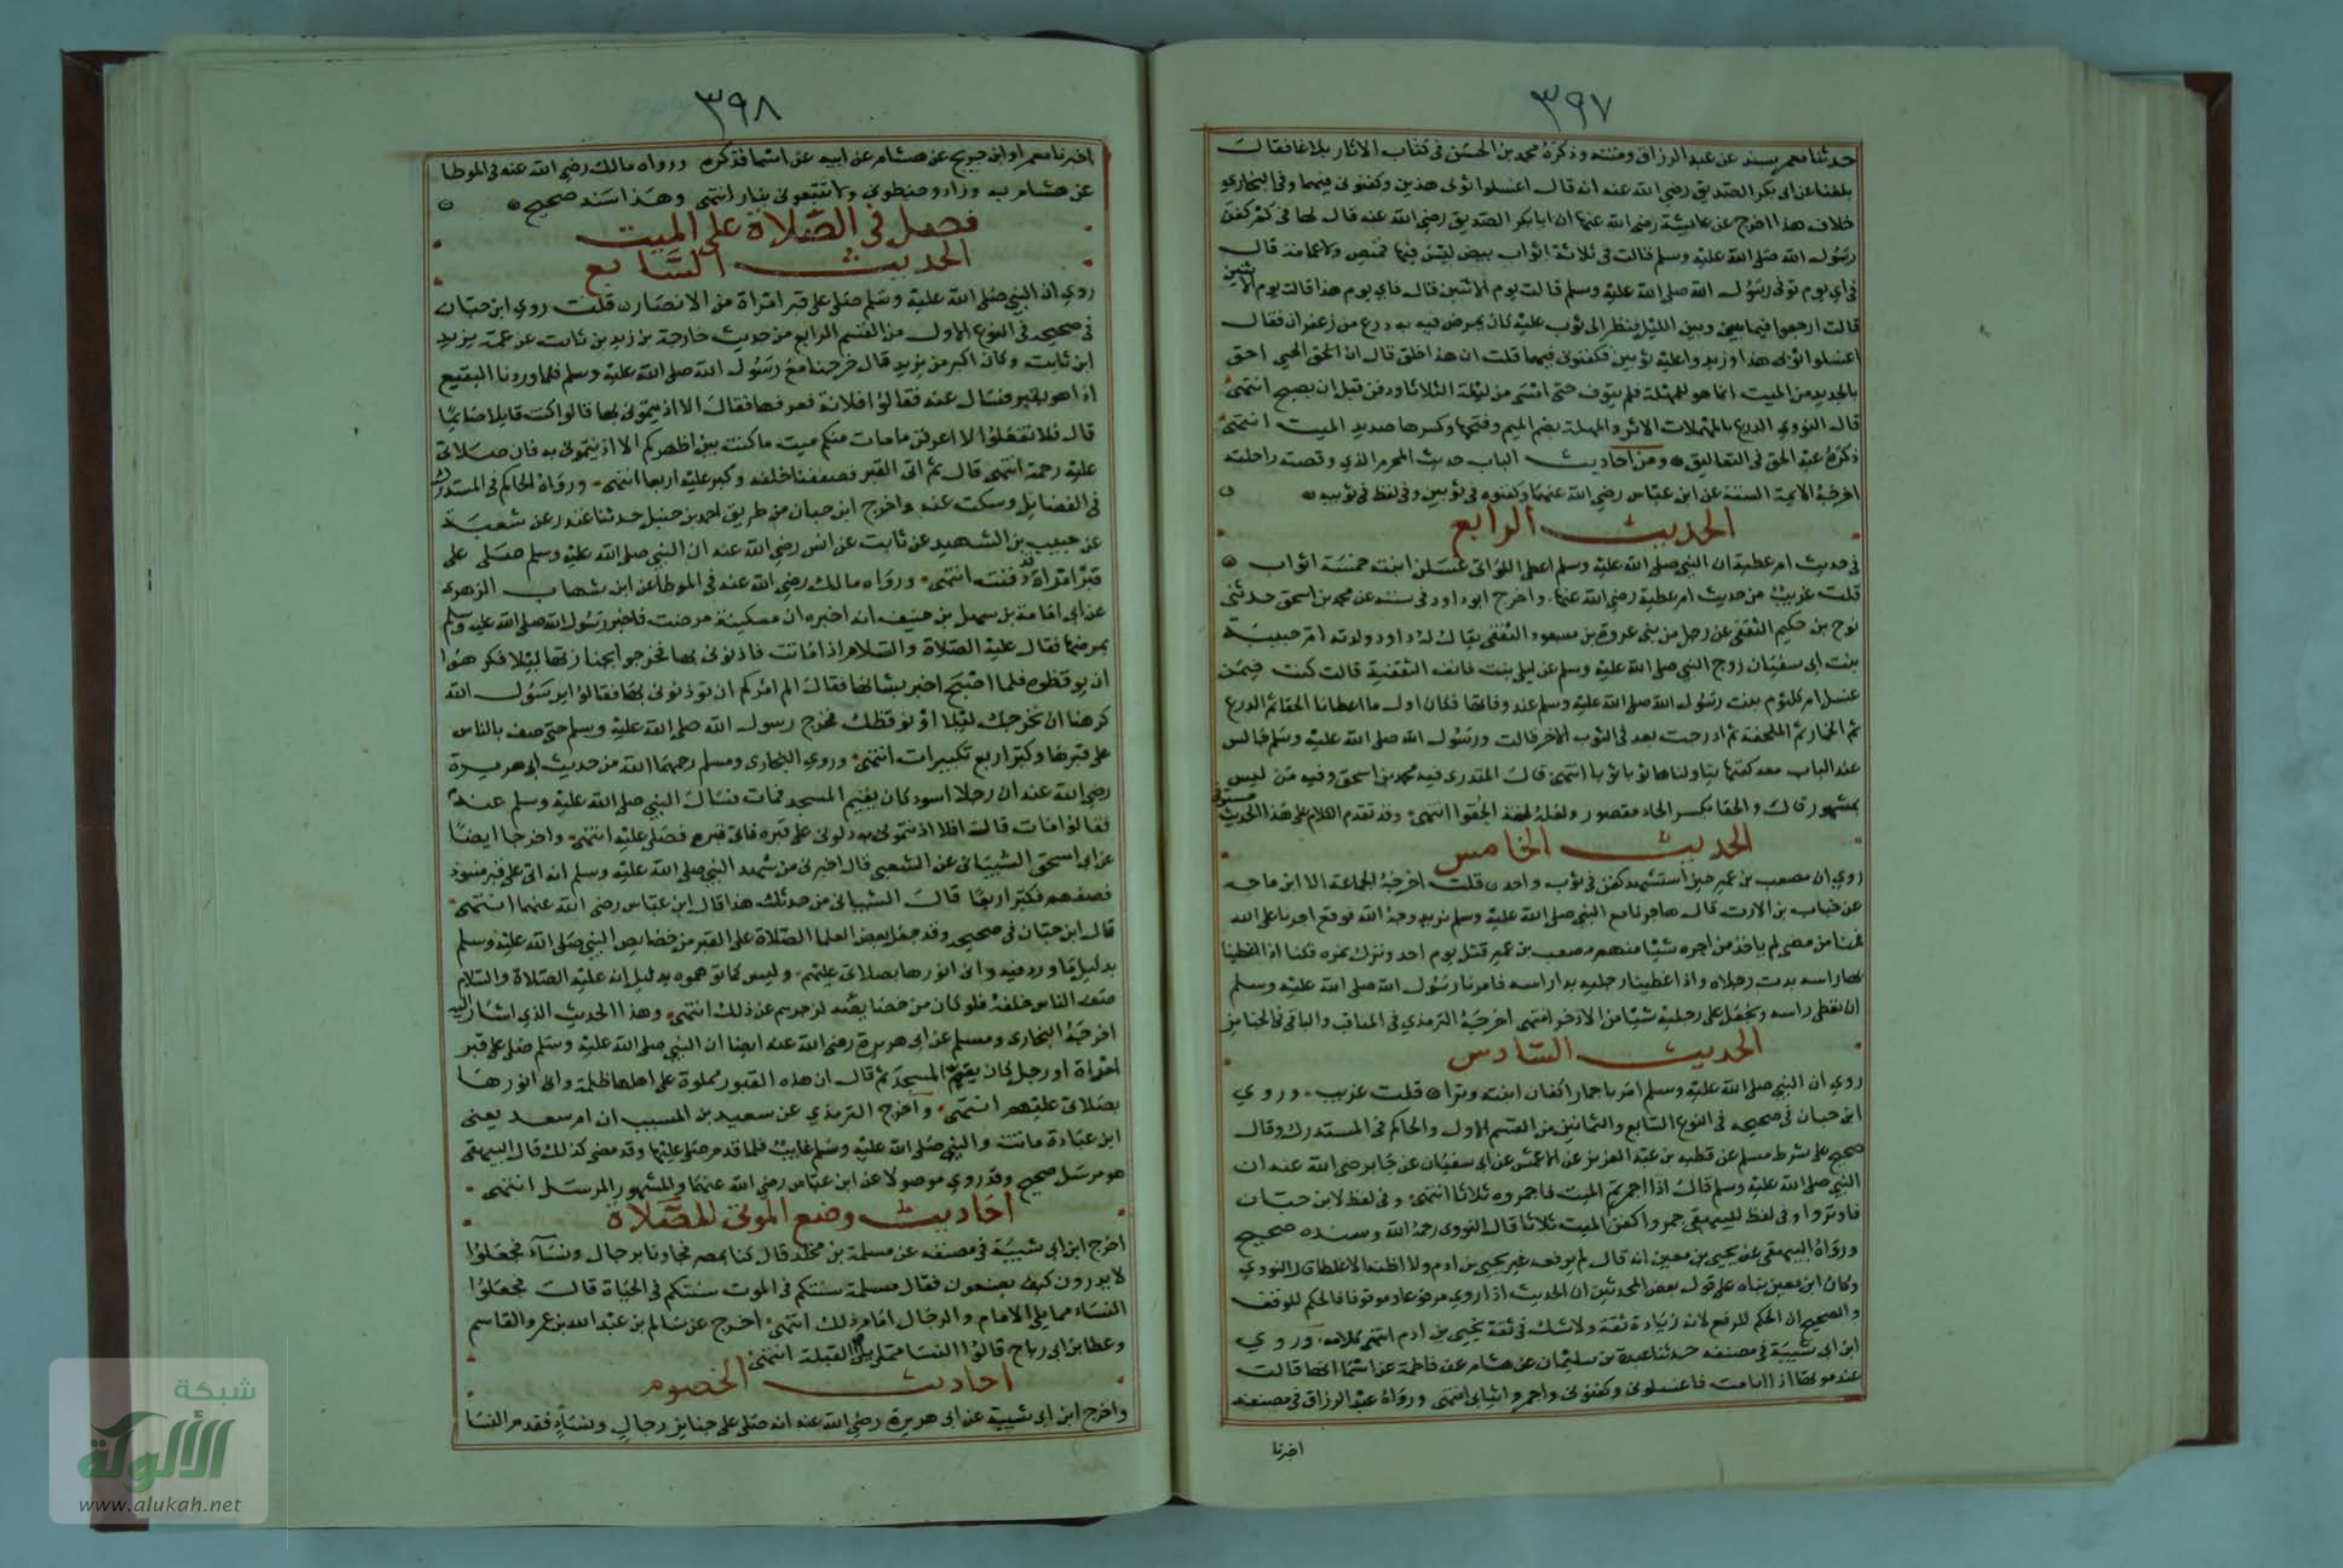 ٣٩٧
حدثنا معمر بسند عن عبد الرزاق ومتنه وذكره محمد بن الحسن في كتاب الاثار بلاغا فقال
بلغنا عن ابى بكر الصديق رضي الله عنه انه قال اغسلوا ثوبى هذين وكفنوني فيهما وفي البخاري
خلاف هذا اخرج عن عائيشة رضي الله عنها ان ابا بكر الصديق رضي الله عنه قال لها في كم كفن
رسول الله صلى الله عليه وسلم قالت في ثلاثة اثواب بيض ليس فيها قميص ولا عمامة قال
في اي يوم توفى رسول الله صلى الله عليه وسلم قالت يوم الاثنين قال فاي يوم هذا قالت يوم الاثنين
قالت ارجعوا فيما بيني وبين الليل فنظر الى ثوب عليه كان يمرض فيه به درع من زعفران فقال
اغسلوا ثوبى هذا وزيدوا عليه ثوبين فكفنونى فيهما قلت ان هذا خلق قال ان الحق الحي احق
بالجديد من الميت انما هو للمهلة فلم يتوف حتى امسى من ليلة الثلاثا ودفن قبل ان يصبح انتهى
قال النووي الدرع بالمهملات الاثر والمهلة بضم الميم وفتحها وكسرها صديد الميت انتهى
ذكره عبد الحق في التعاليق ومن احاديث الباب حديث المحرم الذي وقصته راحلته
اخرجه الايمة الستة عن ابن عباس رضي الله عنهما وكفنوه في ثوبين وفي لفظ في ثوبيه
الحديث الرابع
في حديث ام عطية ان النبي صلى الله عليه وسلم اعطى اللواتي غسلن ابنته خمسة اثواب
قلت غريب من حديث ام عطية رضي الله عنها واخرج ابو داود في سننه عن محمد بن اسحق حدثني
نوح بن حكيم الثقفي عن رجل من بنى عروة بن مسعود الثقفي يقال له داود ولدته ام حبيبة
بنت ابى سفيان زوج النبي صلى الله عليه وسلم عن ليلى بنت قانف الثقفية قالت كنت فيمن
غسل ام كلثوم بنت رسول الله صلى الله عليه وسلم عند وفاتها فكان اول ما اعطانا الحقا ثم الدرع
ثم الخمار ثم الملحفة ثم ادرجت بعد في الثوب الاخر قالت ورسول الله صلى الله عليه وسلم جالس
عند الباب معه كفنها يناولناها ثوبا ثوبا انتهى قال المنذري فيه محمد بن اسحق وفيه من ليس
بمشهور قال والحقا بكسر الحاء مقصور ولعله لغة الحقوا انتهى وقد تقدم الكلام على هذا الحديث مستوفى
الحديث الخامس
روي ان مصعب بن عمير حين استشهد كفن في ثوب واحد قلت اخرجه الجماعة الا ابن ماجه
عن خباب بن الارت قال هاجرنا مع النبي صلى الله عليه وسلم نريد وجه الله فوقع اجرنا على الله
فمنا من مضى لم ياخذ من اجره شيا منهم مصعب بن عمير قتل يوم احد وترك نمرة فكنا اذا غطينا
بها راسه بدت رجلاه واذا غطينا رجليه بدا راسه فامرنا رسول الله صلى الله عليه وسلم
ان نغطى راسه ونجعل على رجليه شيا من الاذخر انتهى اخرجه الترمذي في المناقب والباقى في الجنايز
الحديث السادس
روي ان النبي صلى الله عليه وسلم امر باجمار اكفان ابنته وترا قلت غريب وروي
ابن حبان في صحيحه في النوع السابع والثمانين من القسم الاول والحاكم في المستدرك وقال
صحيح على شرط مسلم عن قطبة بن عبد العزيز عن الاعمش عن ابى سفيان عن جابر رضي الله عنه ان
النبي صلى الله عليه وسلم قال اذا اجمرتم الميت فاجمروه ثلاثا انتهى وفي لفظ لابن حبان
فاوتروا وفى لفظ للبيهقى جمروا كفن الميت ثلاثا قال النووى رحمه الله وسنده صحيح
ورواه البيهقى عن يحيى بن معين انه قال لم يرفعه غير يحيى بن ادم ولا اظنه الا غلطا قال النووي
وكان ابن معين بناه على قول بعض المحدثين ان الحديث اذا روي مرفوعا وموقوفا فالحكم للوقف
والصحيح ان الحكم للرفع لانه زيادة ثقة ولا شك في ثقة يحيى بن ادم انتهى كلامه وروي
ابن ابى شيبة في مصنفه حدثنا عبدة بن سليمان عن هشام عن فاطمة عن اسما انها قالت
عند موتها اذا انا مت فاغسلوني وكفنوني واجمروا ثيابى انتهى ورواه عبد الرزاق في مصنفه
اخبرنا
٣٩٨
اخبرنا معمر او ابن جريج عن هشام عن ابيه عن اسما فذكره ورواه مالك رضي الله عنه في الموطا
عن هشام به وزاد وحنطونى ولا تتبعونى بنار انتهى وهذا سند صحيح
فصل في الصلاة على الميت
الحديث السابع
روي ان النبي صلى الله عليه وسلم صلى على قبر امراة من الانصار قلت روي ابن حبان
في صحيحه في النوع الاول من القسم الرابع من حديث خارجة بن زيد بن ثابت عن عمه يزيد
ابن ثابت وكان اكبر من يزيد قال خرجنا مع رسول الله صلى الله عليه وسلم فلما وردنا البقيع
اذا هو بقبر فسال عنه فقالوا فلانة فعرفها فقال الا اذنتمونى بها قالوا كنت قايلا صايما
قال فلا تفعلوا لا اعرفن ما مات منكم ميت ما كنت بين اظهركم الا اذنتمونى به فان صلاتى
عليه رحمة انتهى قال ثم اتى القبر فصففنا خلفه وكبر عليه اربعا انتهى ورواه الحاكم في المستدرك
في الفضايل وسكت عنه واخرج ابن حبان من طريق احمد بن حنبل حدثنا غندر عن شعبة
عن حبيب بن الشهيد عن ثابت عن انس رضي الله عنه ان النبي صلى الله عليه وسلم صلى على
قبر امراة قد دفنت انتهى ورواه مالك رضي الله عنه في الموطا عن ابن شهاب الزهرى
عن ابى امامة بن سهل بن حنيف انه اخبره ان مسكينة مرضت فاخبر رسول الله صلى الله عليه وسلم
بمرضها فقال عليه الصلاة والسلام اذا ماتت فاذنونى بها فخرجوا بجنازتها ليلا فكرهوا
ان يوقظوه فلما اصبح اخبر بشانها فقال الم امركم ان توذنونى بها فقالوا يرسول الله
كرهنا ان نخرجك ليلا او نوقظك فخرج رسول الله صلى الله عليه وسلم حتى صف بالناس
على قبرها وكبر اربع تكبيرات انتهى وروي البخارى ومسلم رحمهما الله من حديث ابى هريرة
رضي الله عنه ان رجلا اسود كان يقيم المسجد فمات فسال النبي صلى الله عليه وسلم عنه
فقالوا مات قال افلا اذنتمونى به دلونى على قبره فاتى قبره فصلى عليه انتهى واخرجا ايضا
عن ابى اسحق الشيبانى عن الشعبى قال اخبرنى من شهد النبي صلى الله عليه وسلم انه اتى على قبر منبوذ
فصفهم فكبر اربعا قال الشيبانى من حدثك هذا قال ابن عباس رضي الله عنهما انتهى
قال ابن حبان في صحيحه وقد جعل بعض العلما الصلاة على القبر من خصايص النبي صلى الله عليه وسلم
بدليل ما ورد فيه وانى انورها بصلاتى عليهم وليس كما توهموه بدليل انه عليه الصلاة والسلام
صف الناس خلفه فلو كان من خصايصه لزجرهم عن ذلك انتهى وهذا الحديث الذي اشار اليه
اخرجه البخارى ومسلم عن ابى هريرة رضي الله عنه ايضا ان النبي صلى الله عليه وسلم صلى على قبر
امراة او رجل كان يقيم المسجد ثم قال ان هذه القبور مملوة على اهلها ظلمة وانى انورها
بصلاتى عليهم انتهى واخرج الترمذي عن سعيد بن المسيب ان ام سعد يعنى
ابن عبادة ماتت والنبي صلى الله عليه وسلم غايب فلما قدم صلى عليها وقد مضى كذلك قال البيهقى
هو مرسل صحيح وقد روي موصولا عن ابن عباس رضي الله عنهما والمشهور المرسل انتهى
احاديث وضع الموتى للصلاة
اخرج ابن ابى شيبة في مصنفه عن مسلمة بن مخلد قال كنا بمصر فجاونا برجال ونساء فجعلوا
لا يدرون كيف يصنعون فقال مسلمة سنتكم في الموت سنتكم في الحياة قال فجعلوا
النساء مما يلى الامام والرجال امام ذلك انتهى اخرج عن سالم بن عبد الله بن عمر والقاسم
وعطا بن ابى رباح قالوا النسا مما يلى القبلة انتهى
احاديث الخصوم
واخرج ابن ابى شيبة عن ابى هريرة رضي الله عنه انه صلى على جنايز رجال ونساء فقدم النسا
شبكة
الألوكة
www.alukah.net